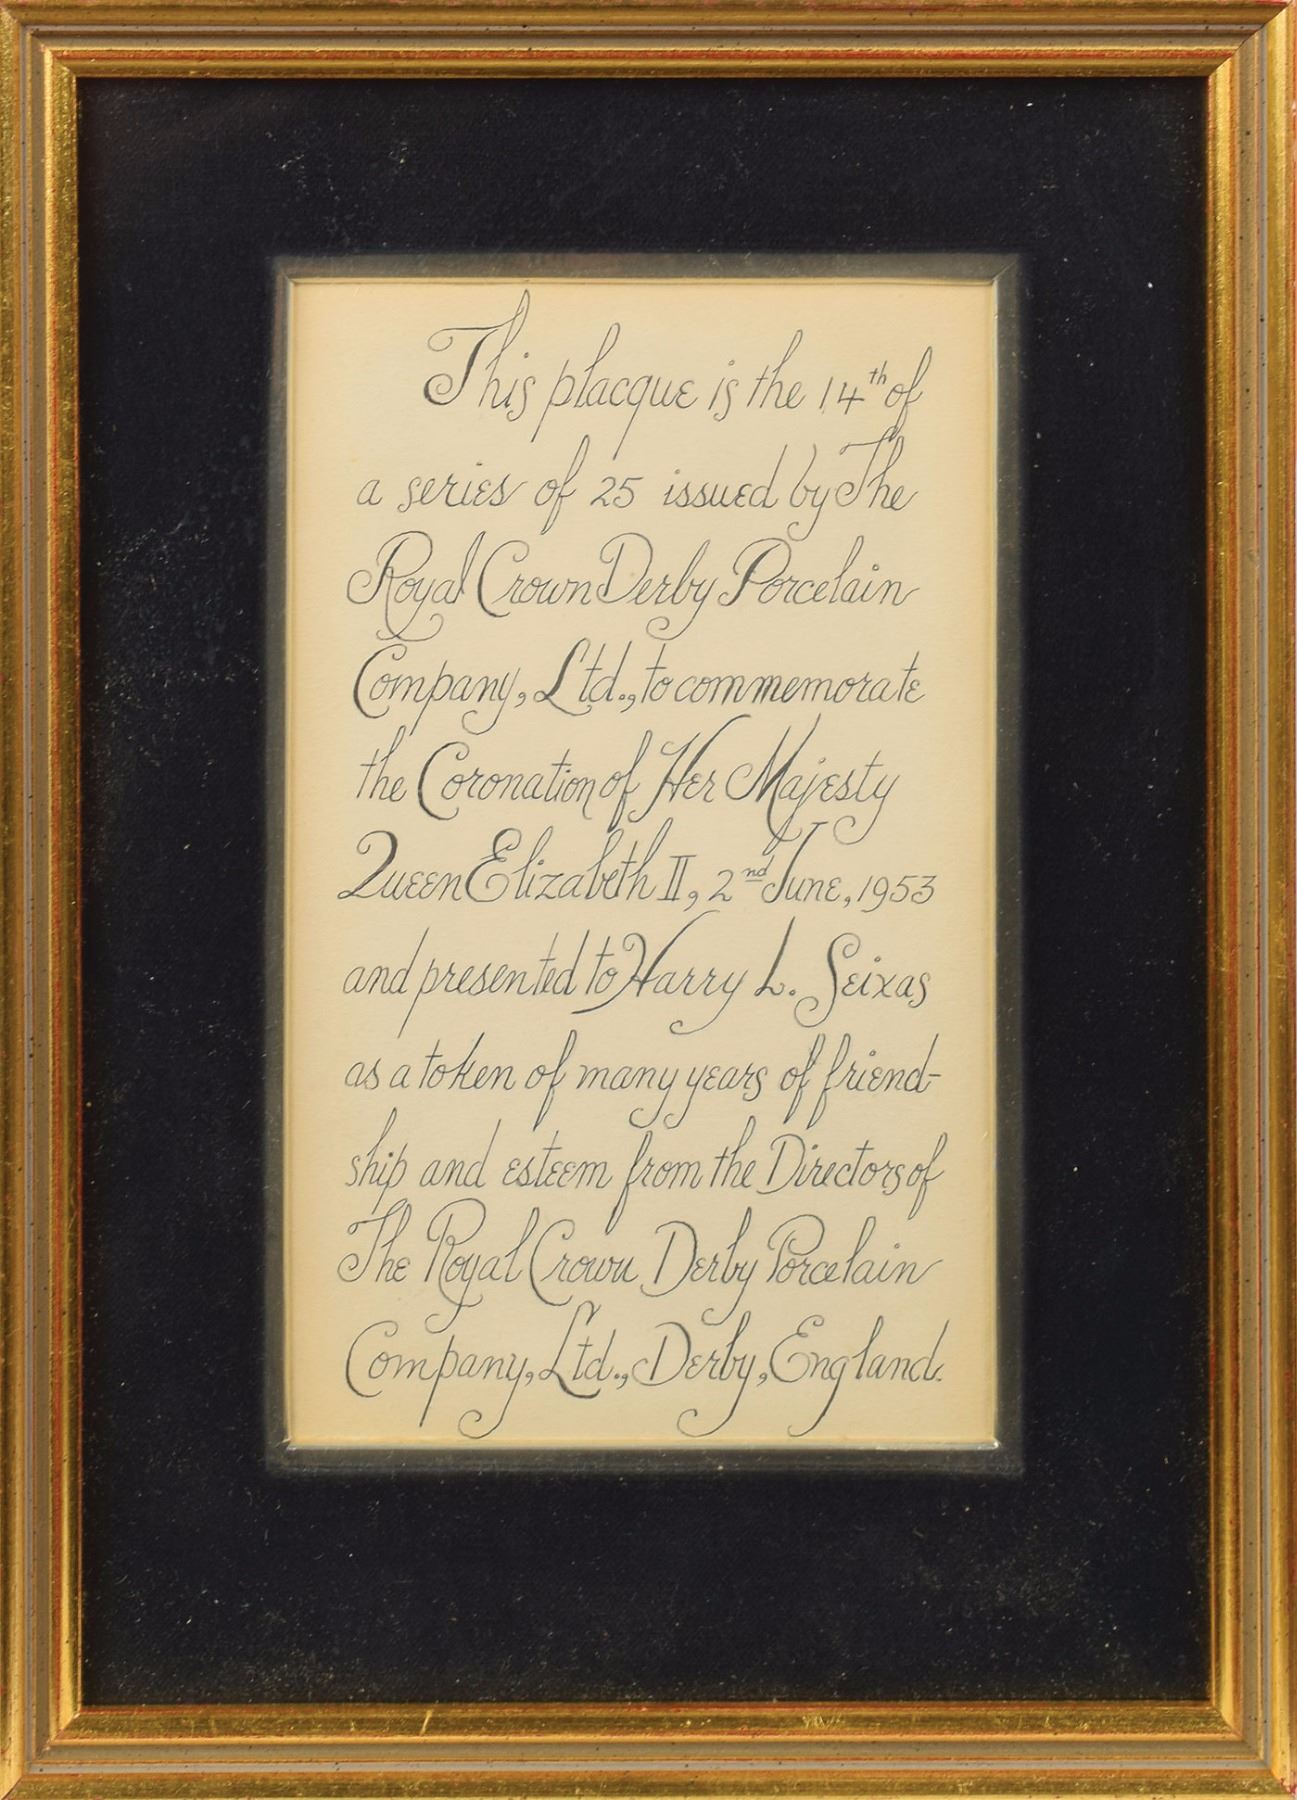 This placque is the 14th of
a series of 25 issued by The
Royal Crown Derby Porcelain
Company, Ltd., to commemorate
the Coronation of Her Majesty
Queen Elizabeth II, 2nd June, 1953
and presented to Harry L. Seixas
as a token of many years of friend-
ship and esteem from the Directors of
The Royal Crown Derby Porcelain
Company, Ltd., Derby, England.